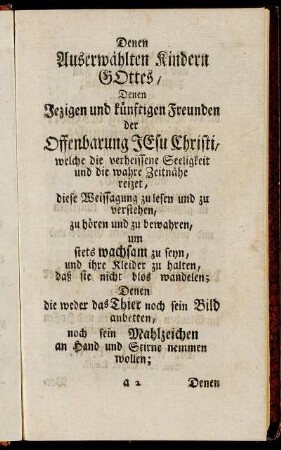 Denen
Auserwählten Kindern
GOttes/
Denen
Jezigen und künftigen Freunden
der
Offenbarung JEsu Christi/
welche die verheissene Seeligkeit
und die wahre Zeitnähe
reizet,
diese Weissagung zu lesen und zu
verstehen,
zu hören und zu bewahren,
um
stets wachsam zu seyn,
und ihre Kleider zu halten,
daß sie nicht blos wandelen;
Denen
die weder das Thier noch sein Bild
anbetten,
noch sein Mahlzeichen
an Hand und Stirne nemmen
wollen;
a 2 Denen